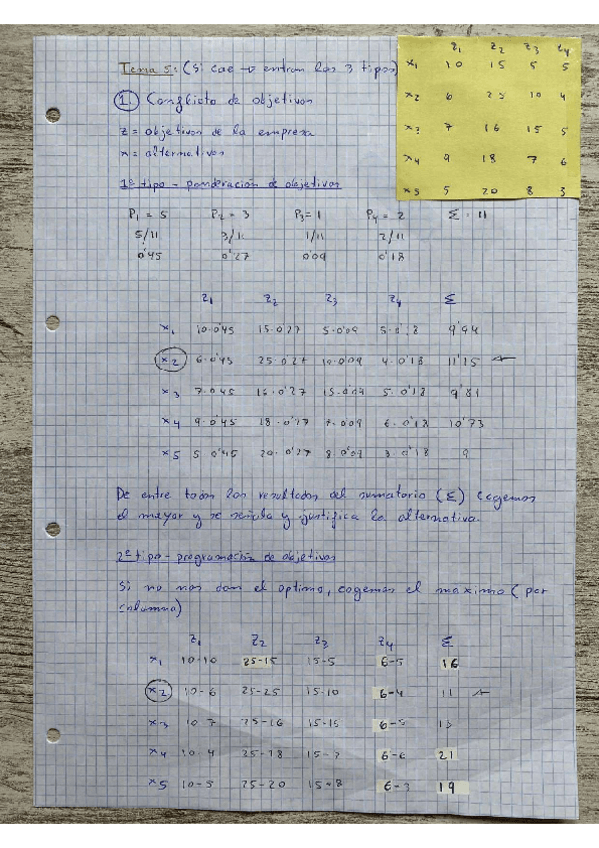 Tema 5: (Si cae → entran los 3 tipos)
z1 z2 z3 z4
x1 10 15 5 5
x2 6 25 10 4
x3 7 16 15 5
x4 9 18 7 6
x5 5 20 8 3
1. Conflicto de objetivos
z = objetivos de la empresa
x = alternativas
1º tipo - ponderación de objetivos
P1 = 5 P2 = 3 P3 = 1 P4 = 2 Σ = 11
5/11 3/11 1/11 2/11
0'45 0'27 0'09 0'18
z1 z2 z3 z4 Σ
x1 10·0'45 15·0'27 5·0'09 5·0'18 9'94
x2 6·0'45 25·0'27 10·0'09 4·0'18 11'15
x3 7·0'45 16·0'27 15·0'09 5·0'18 9'81
x4 9·0'45 18·0'27 7·0'09 6·0'18 10'73
x5 5·0'45 20·0'27 8·0'09 3·0'18 9
De entre todos los resultados del sumatorio (Σ) cogemos
el mayor y se señala y justifica la alternativa.
2º tipo - programación de objetivos
Si no nos dan el optimo, cogemos el maximo (por
columna)
z1 z2 z3 z4 Σ
x1 10-10 25-15 15-5 6-5 16
x2 10-6 25-25 15-10 6-4 11
x3 10-7 25-16 15-15 6-5 13
x4 10-4 25-18 15-7 6-6 21
x5 10-5 25-20 15-8 6-3 19